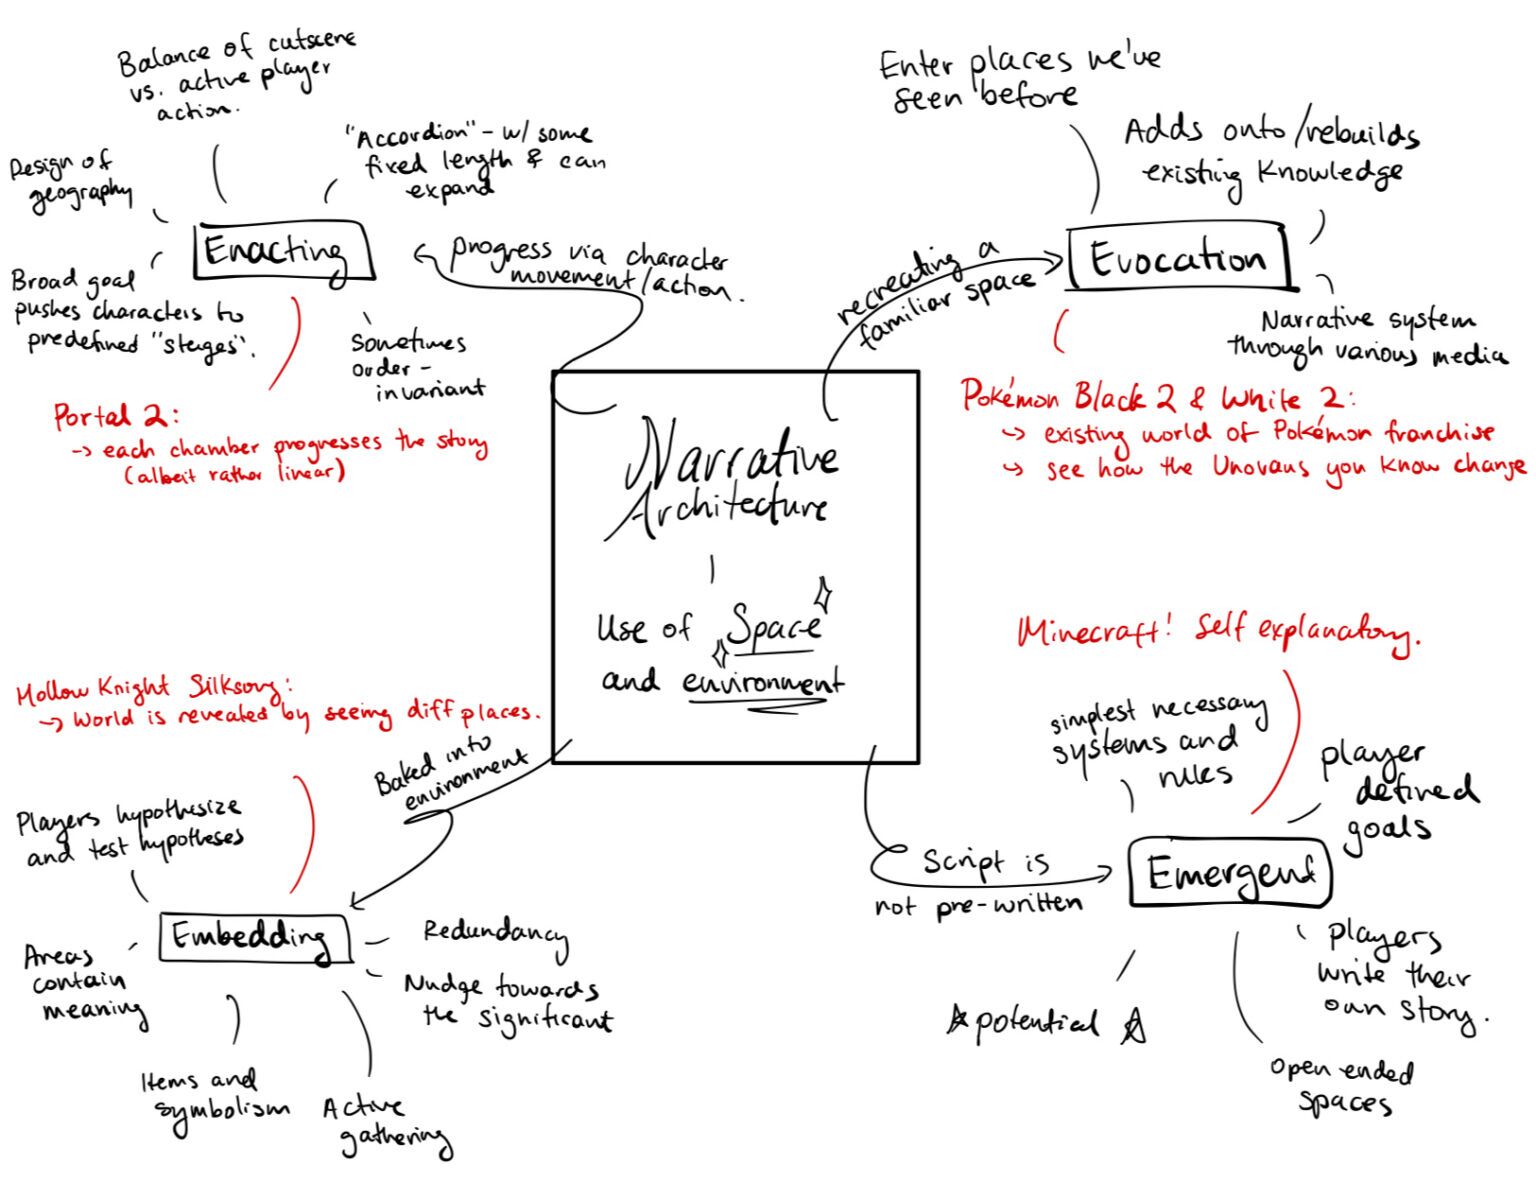 Balance of cutscene
vs. active player
action.
"Accordion" - w/ some
fixed length & can
expand
Design of
geography
Enacting
Broad goal
pushes characters to
predefined "stages".
Sometimes
order-
invariant
Progress via character
movement/action.
Portal 2:
→ each chamber progresses the story
(albeit rather linear)
Enter places we've
seen before
Adds onto/rebuilds
existing knowledge
recreating a
familiar space
Evocation
Narrative system
through various media
Pokémon Black 2 & White 2:
→ existing world of Pokémon franchise
→ see how the Unovans you know change
Narrative
Architecture
Use of Space
and environment
Hollow Knight Silksong:
→ World is revealed by seeing diff places.
Baked into
environment
Players hypothesize
and test hypotheses
Embedding
Areas
contain
meaning
Redundancy
Nudge towards
the significant
Items and
symbolism
Active
gathering
Minecraft! Self explanatory.
simplest necessary
systems and
rules
player
defined
goals
Script is
not pre-written
Emergent
players
write their
own story.
☆ potential ☆
Open ended
spaces